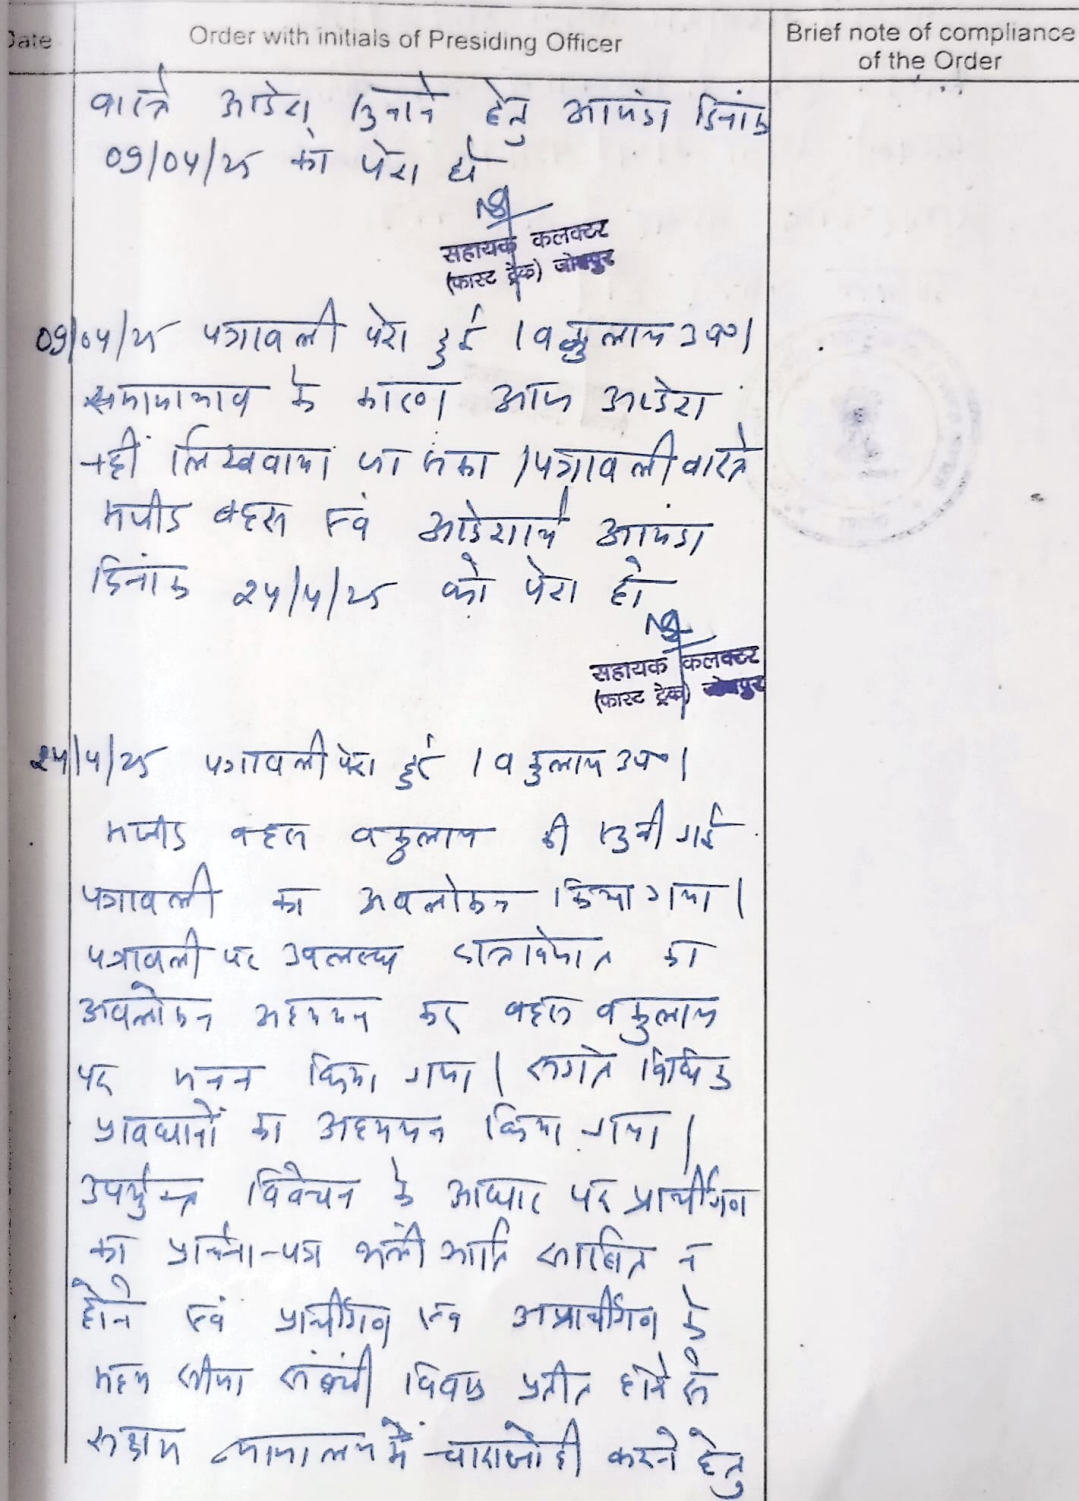 Date
Order with initials of Presiding Officer
Brief note of compliance
of the Order
वास्ते आदेश सुनाने हेतु आयंदा दिनांक
09/04/25 को पेश हो
सहायक कलक्टर
(फास्ट ट्रैक) जोधपुर
09/04/25 पत्रावली पेश हुई । वकुलाय उप०।
समयाभाव के कारण आज आदेश
नहीं लिखवाया जा सका । पत्रावली वास्ते
मजीद बहस एवं आदेशार्थ आयंदा
दिनांक 24/4/25 को पेश हो
सहायक कलक्टर
(फास्ट ट्रैक) जोधपुर
24/4/25 पत्रावली पेश हुई । वकुलाय उप०।
मजीद बहस वकुलाय की सुनी गई
पत्रावली का अवलोकन किया गया।
पत्रावली पर उपलब्ध दस्तावेजात का
अवलोकन अध्ययन कर बहस वकुलाय
पर मनन किया गया। संगत विधिक
प्रावधानों का अध्ययन किया गया।
उपर्युक्त विवेचन के आधार पर प्रार्थीगण
का प्रार्थना-पत्र भली भांति साबित न
होने एवं प्रार्थीगण एवं अप्रार्थीगण के
मध्य सीमा संबंधी विवाद प्रतीत होने से
सक्षम न्यायालय में चाराजोही करने हेतु